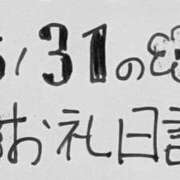 5/31の
お礼日記